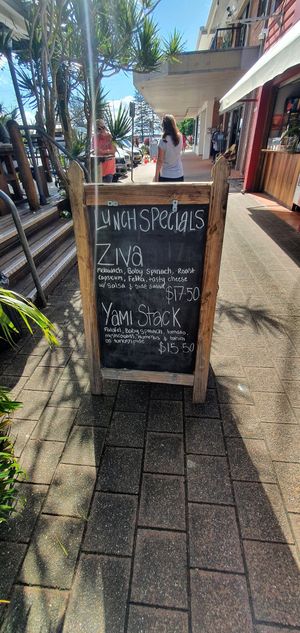 LUNCH SPECIALS
ZIVA
Malawach, Baby Spinach, Roast
capsicum, Fetta, tasty cheese
w/ Salsa & side salad
$17.50
YAMI STACK
Falafel, Baby Spinach, tomato,
hummus & tahini
on
$15.50